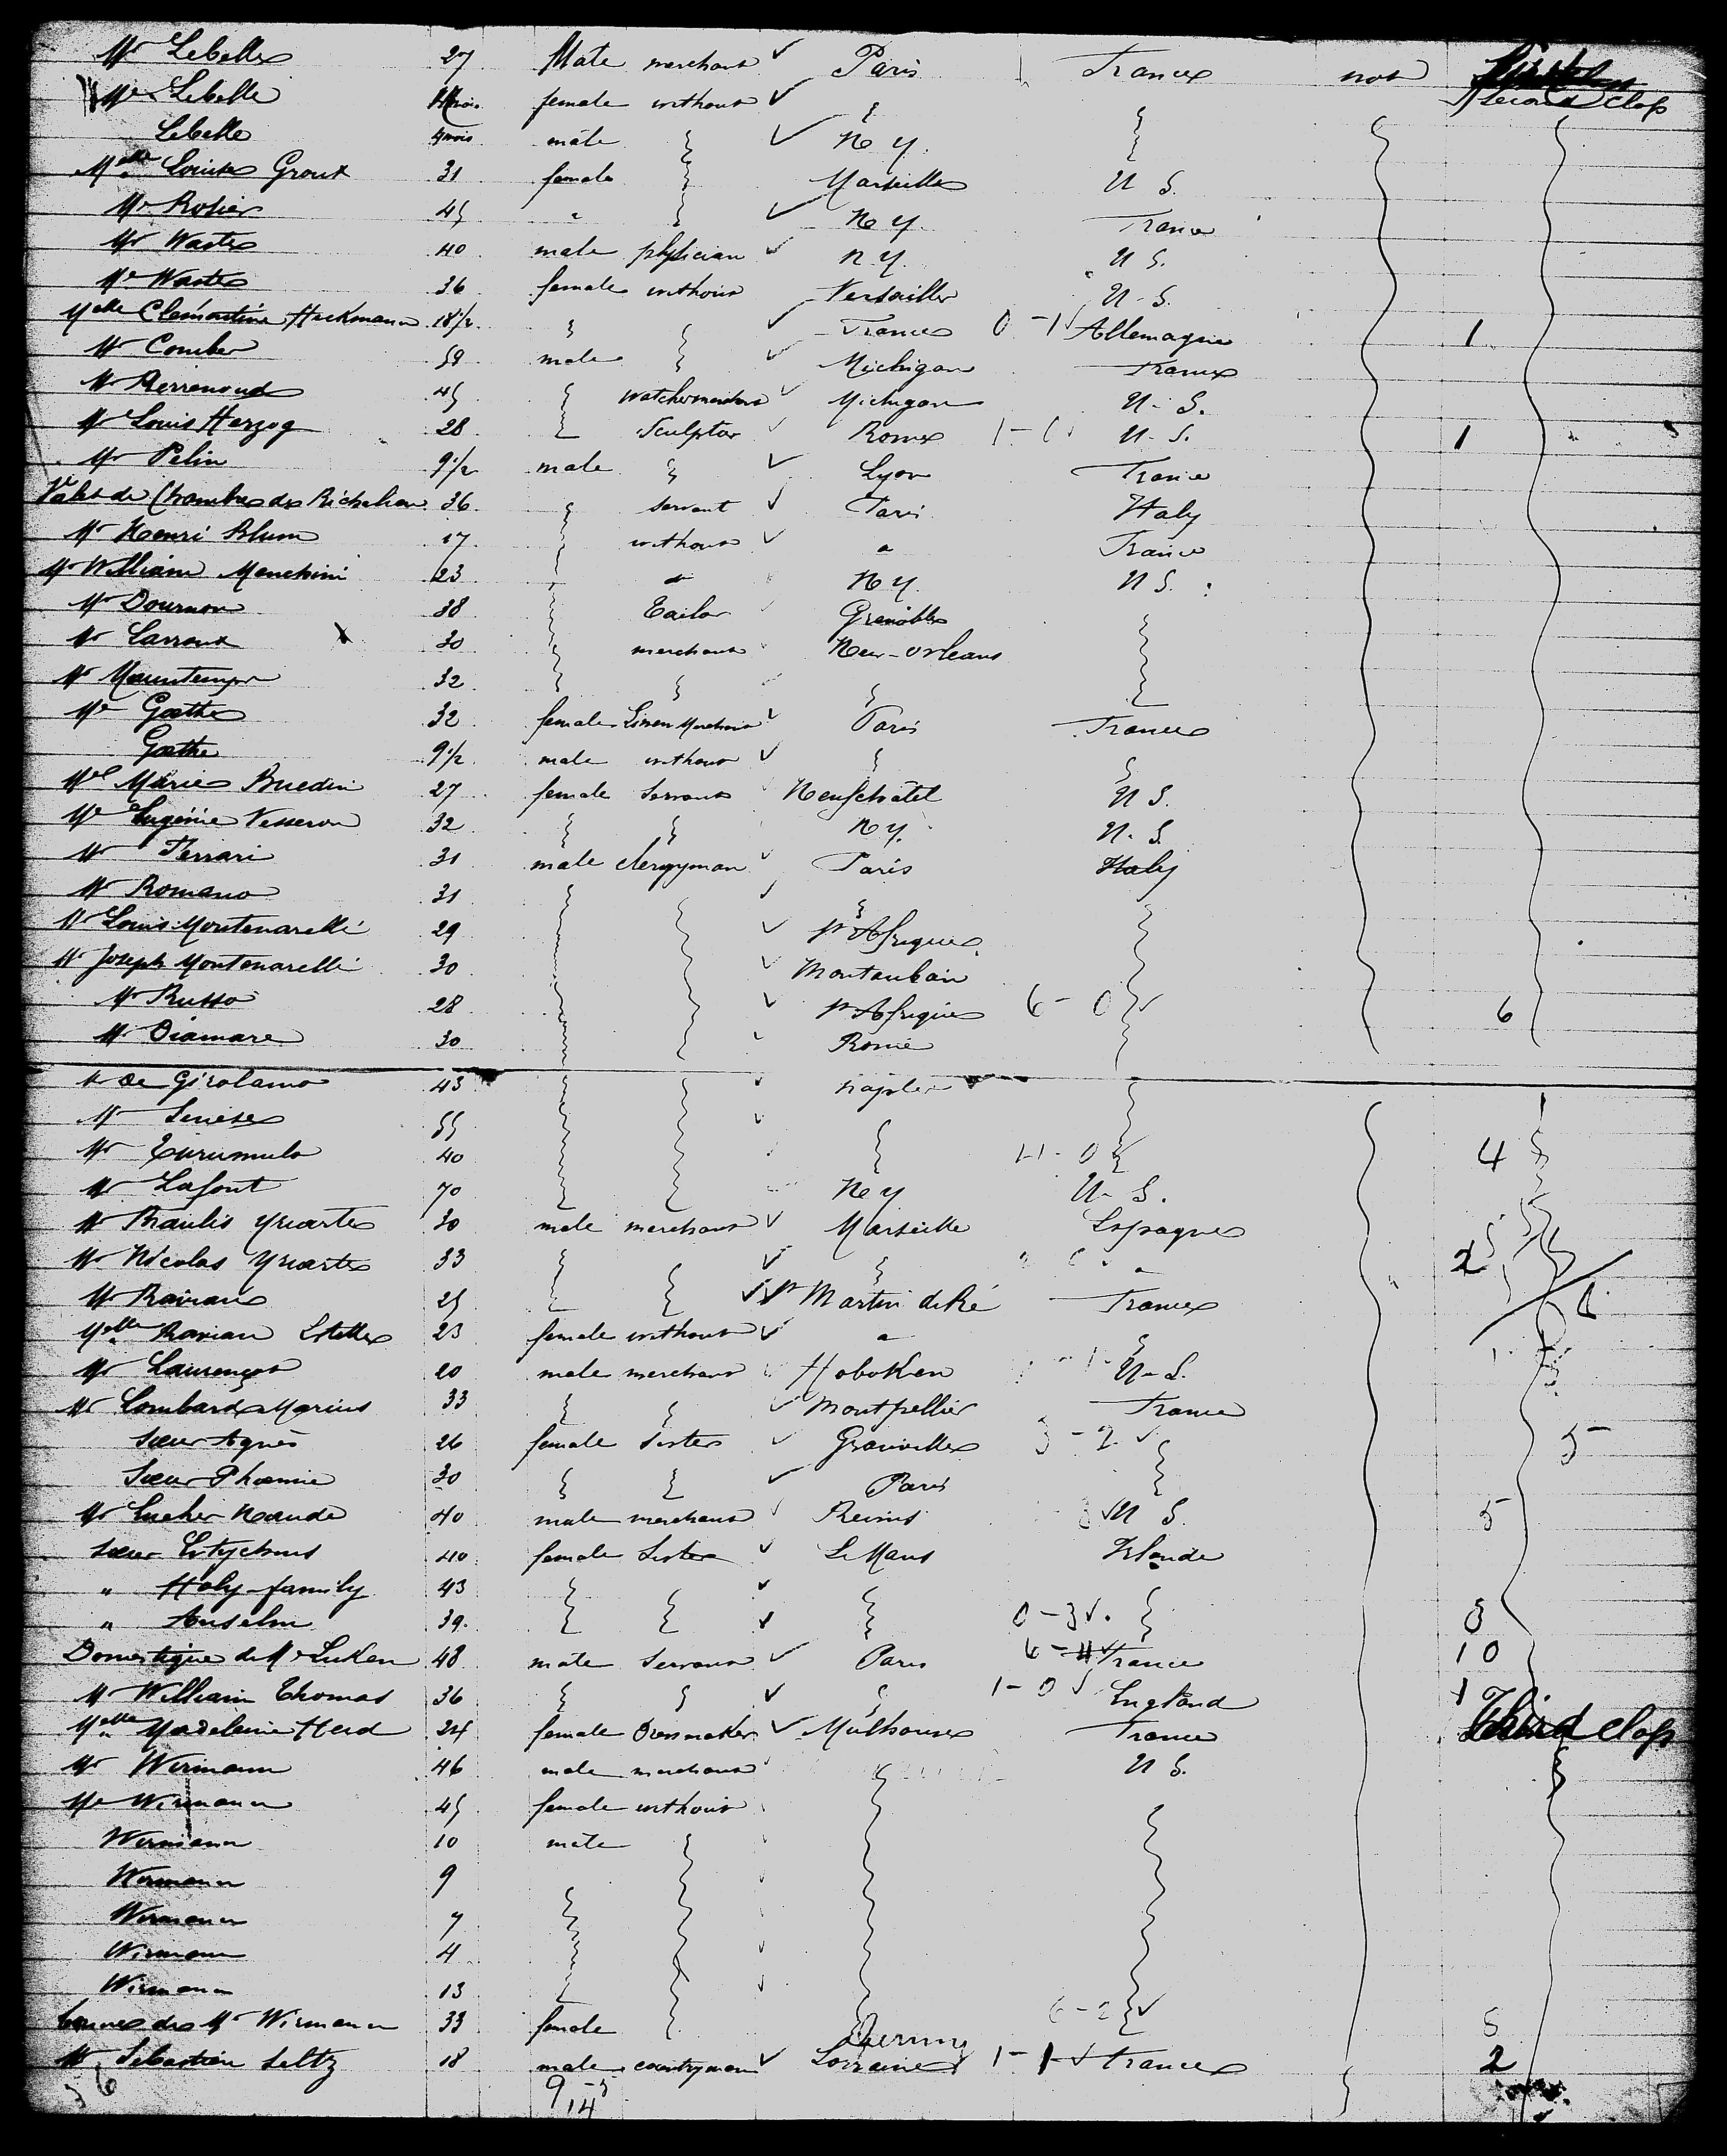 Mr Lebelle 27 Male merchant ✓ Paris France not Second class
Me Lebelle female without ✓
Lebelle 4 mois male ✓ N Y.
Melle Louise Groux 31 female Marseille U S.
Mr Rosier 45 " ✓ N Y. France
Mr Waste 40 male physician ✓ N Y. U S.
Me Waste 36 female without Versailles U. S.
Melle Clémentine Heckmann 18 1/2 ✓ France 0 - 1 ✓ Allemagne 1
Mr Comber 59 male ✓ Michigan France
Mr Perrenoud 45 Watchermaker ✓ Michigan U. S.
Mr Louis Herzog 28 Sculptor ✓ Rome U. S. 1
Mr Pelin 9 1/2 male ✓ Lyon France
Valet de Chambre de Richelieu 36 servant ✓ Paris Italy
Mr Henri Blum 17 without ✓ " France
Mr William Menchini 23 " N Y. U S.
Mr Dournon 38 Tailor Grenoble
Mr Larroux 30 merchant New-Orleans
Mr 32
Me Goethe 32 female Linen Merchant ✓ Paris France
Goethe 9 1/2 male without ✓
Mel Marie Buedin 27 female Servant Neufchatel U S.
Me Eugénie Vesseron 32 N Y. U. S.
Mr Ferrari 31 male clergyman ✓ Paris Italy
Mr Romano 31 ✓
Mr Louis Montenarelli 29 ✓ St Afrique
Mr Joseph Montenarelli 30 ✓ Montauban
Mr Russo 28 ✓ St Afrique 6 - 0 ✓ 6
Mr Diamare 30 Rome
Mr de Girolamo 43 Naples
Mr Senese 55
Mr 40 4 - 0 ✓ 4
Mr Lafont 70 N Y U. S.
Mr Yriarte 30 male merchant ✓ Marseille Espagne
Mr Nicolas Yriarte 33 ✓ " 2
Mr Raviane 25 ✓✓ St Martin de Ré France
Melle Ravian Estelle 23 female without ✓ "
Mr Laurençot 20 male merchant Hoboken U. S.
Mr Lombard Marius 33 ✓ Montpellier France
Soeur Agnès 26 female Sister ✓ Granville 3 - 2 ✓ 5
Soeur Phoemie 30 ✓ Paris
Mr 40 male merchant Reims ✓ U S. 5
Soeur 40 female Sister ✓ Le Mans Irlande
" Holy-family 43 ✓
" Anselm 39. ✓ 0 - 3 ✓
Domestique de Mr Luken 48 male Servant ✓ Paris France 10
Mr William Thomas 36 ✓ 1 - 0 ✓ England 1
Melle Madeleine Heid 24 female Dressmaker ✓ Mulhouse France Third class
Mr Wirmann 46 male merchant U S.
Me Wirmann 45 female without
Wirmann 10 male
Wirmann 9
Wirmann 7
Wirmann 4
Wirmann 13
bonne de Mr Wirmann 33 female 6 - 2 ✓
Germ
Mr Sebastien Seltz 18 male countryman ✓ Lorraine 1 - 1 ✓ France 2
9
14